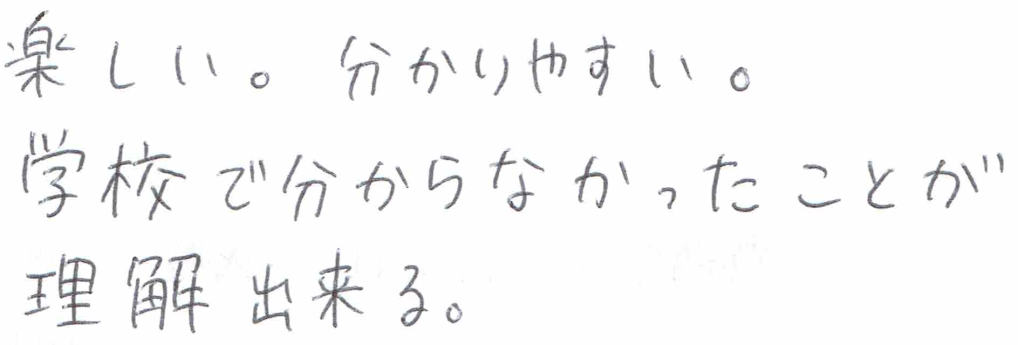 楽しい。分かりやすい。
学校で分からなかったことが
理解出来る。